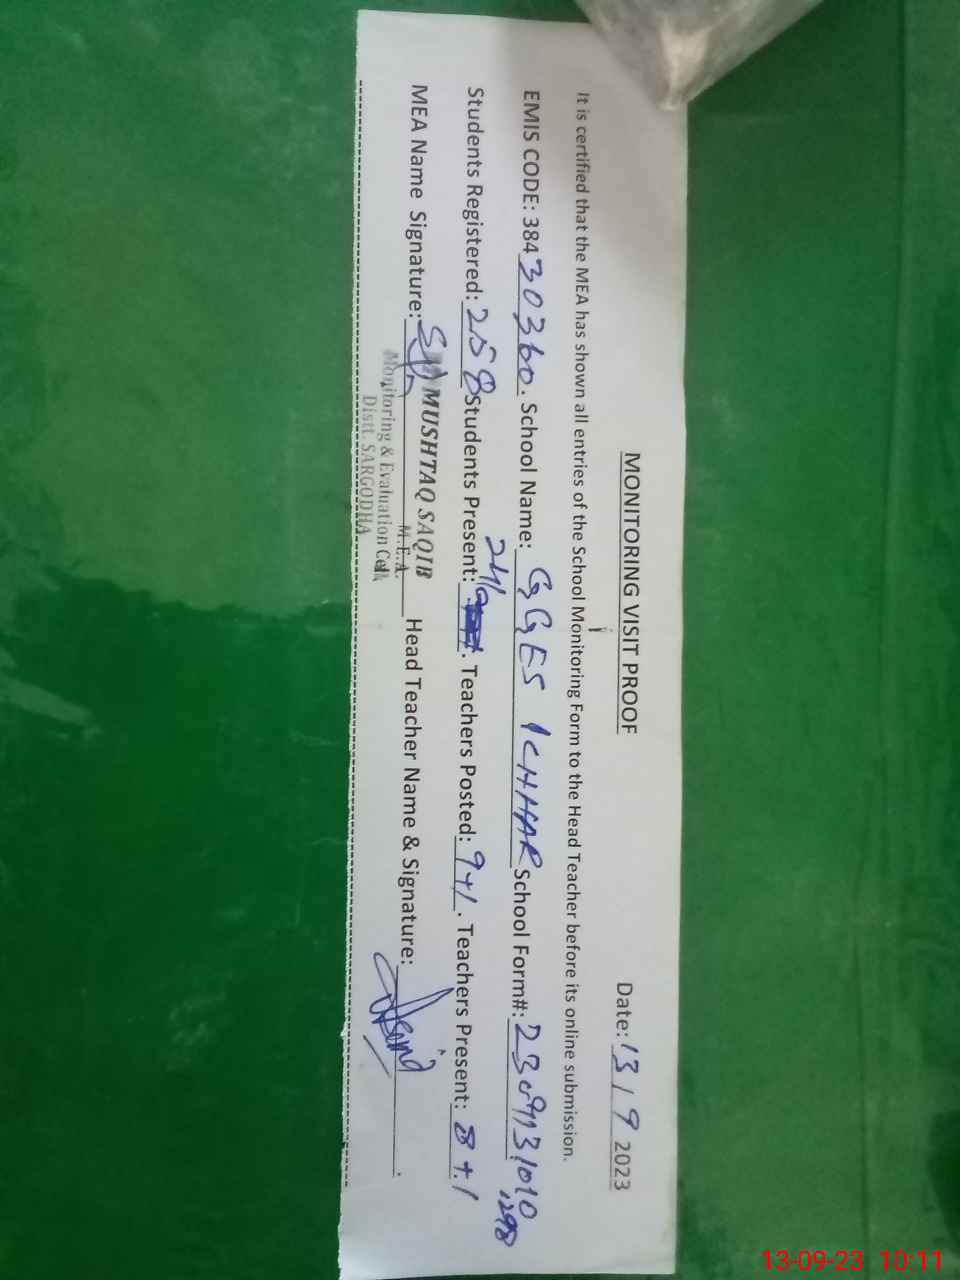 MONITORING VISIT PROOF
Date: 13/9 2023
It is certified that the MEA has shown all entries of the School Monitoring Form to the Head Teacher before its online submission.
EMIS CODE: 38430360. School Name: GGES ICHHAR School Form#: 2309131010
1298
Students Registered: 258 Students Present: 240. Teachers Posted: 9+1. Teachers Present: 8+1
MEA Name Signature: Head Teacher Name & Signature:
MUSHTAQ SAQIB
M.E.A.
Monitoring & Evaluation Cell
Distt. SARGODHA
13-09-23 10:11